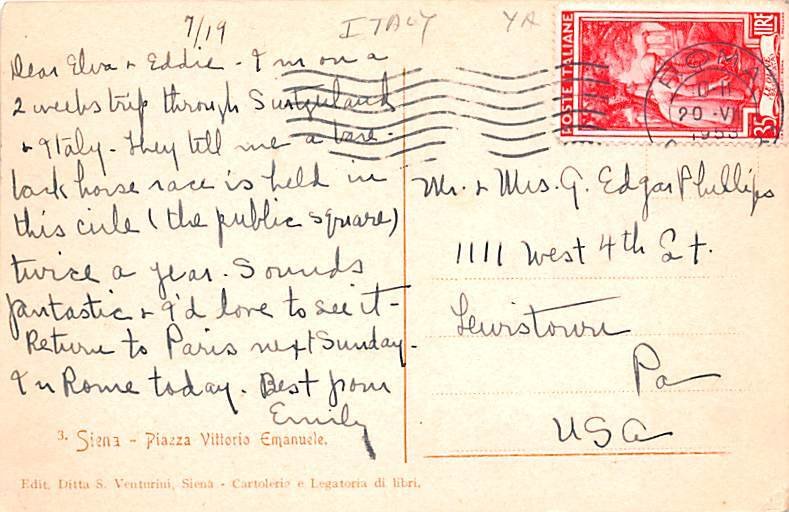 7/19
ITALY
Dear Elva + Eddie - I'm on a
2 weeks trip through Switzerland
+ Italy - They tell me a bare-
back horse race is held in
this circle (the public square)
twice a year. Sounds
fantastic + I'd love to see it -
Return to Paris next Sunday.
In Rome today. Best from
Emily
3. Siena - Piazza Vittorio Emanuele.
Edit. Ditta S. Venturini, Siena - Cartolerio e Legatoria di libri.
POSTE ITALIANE
LIRE
35
ROMA
20 · VII
Mr. + Mrs. G. Edgar Phillips
1111 West 4th St.
Lewistown
Pa
USA